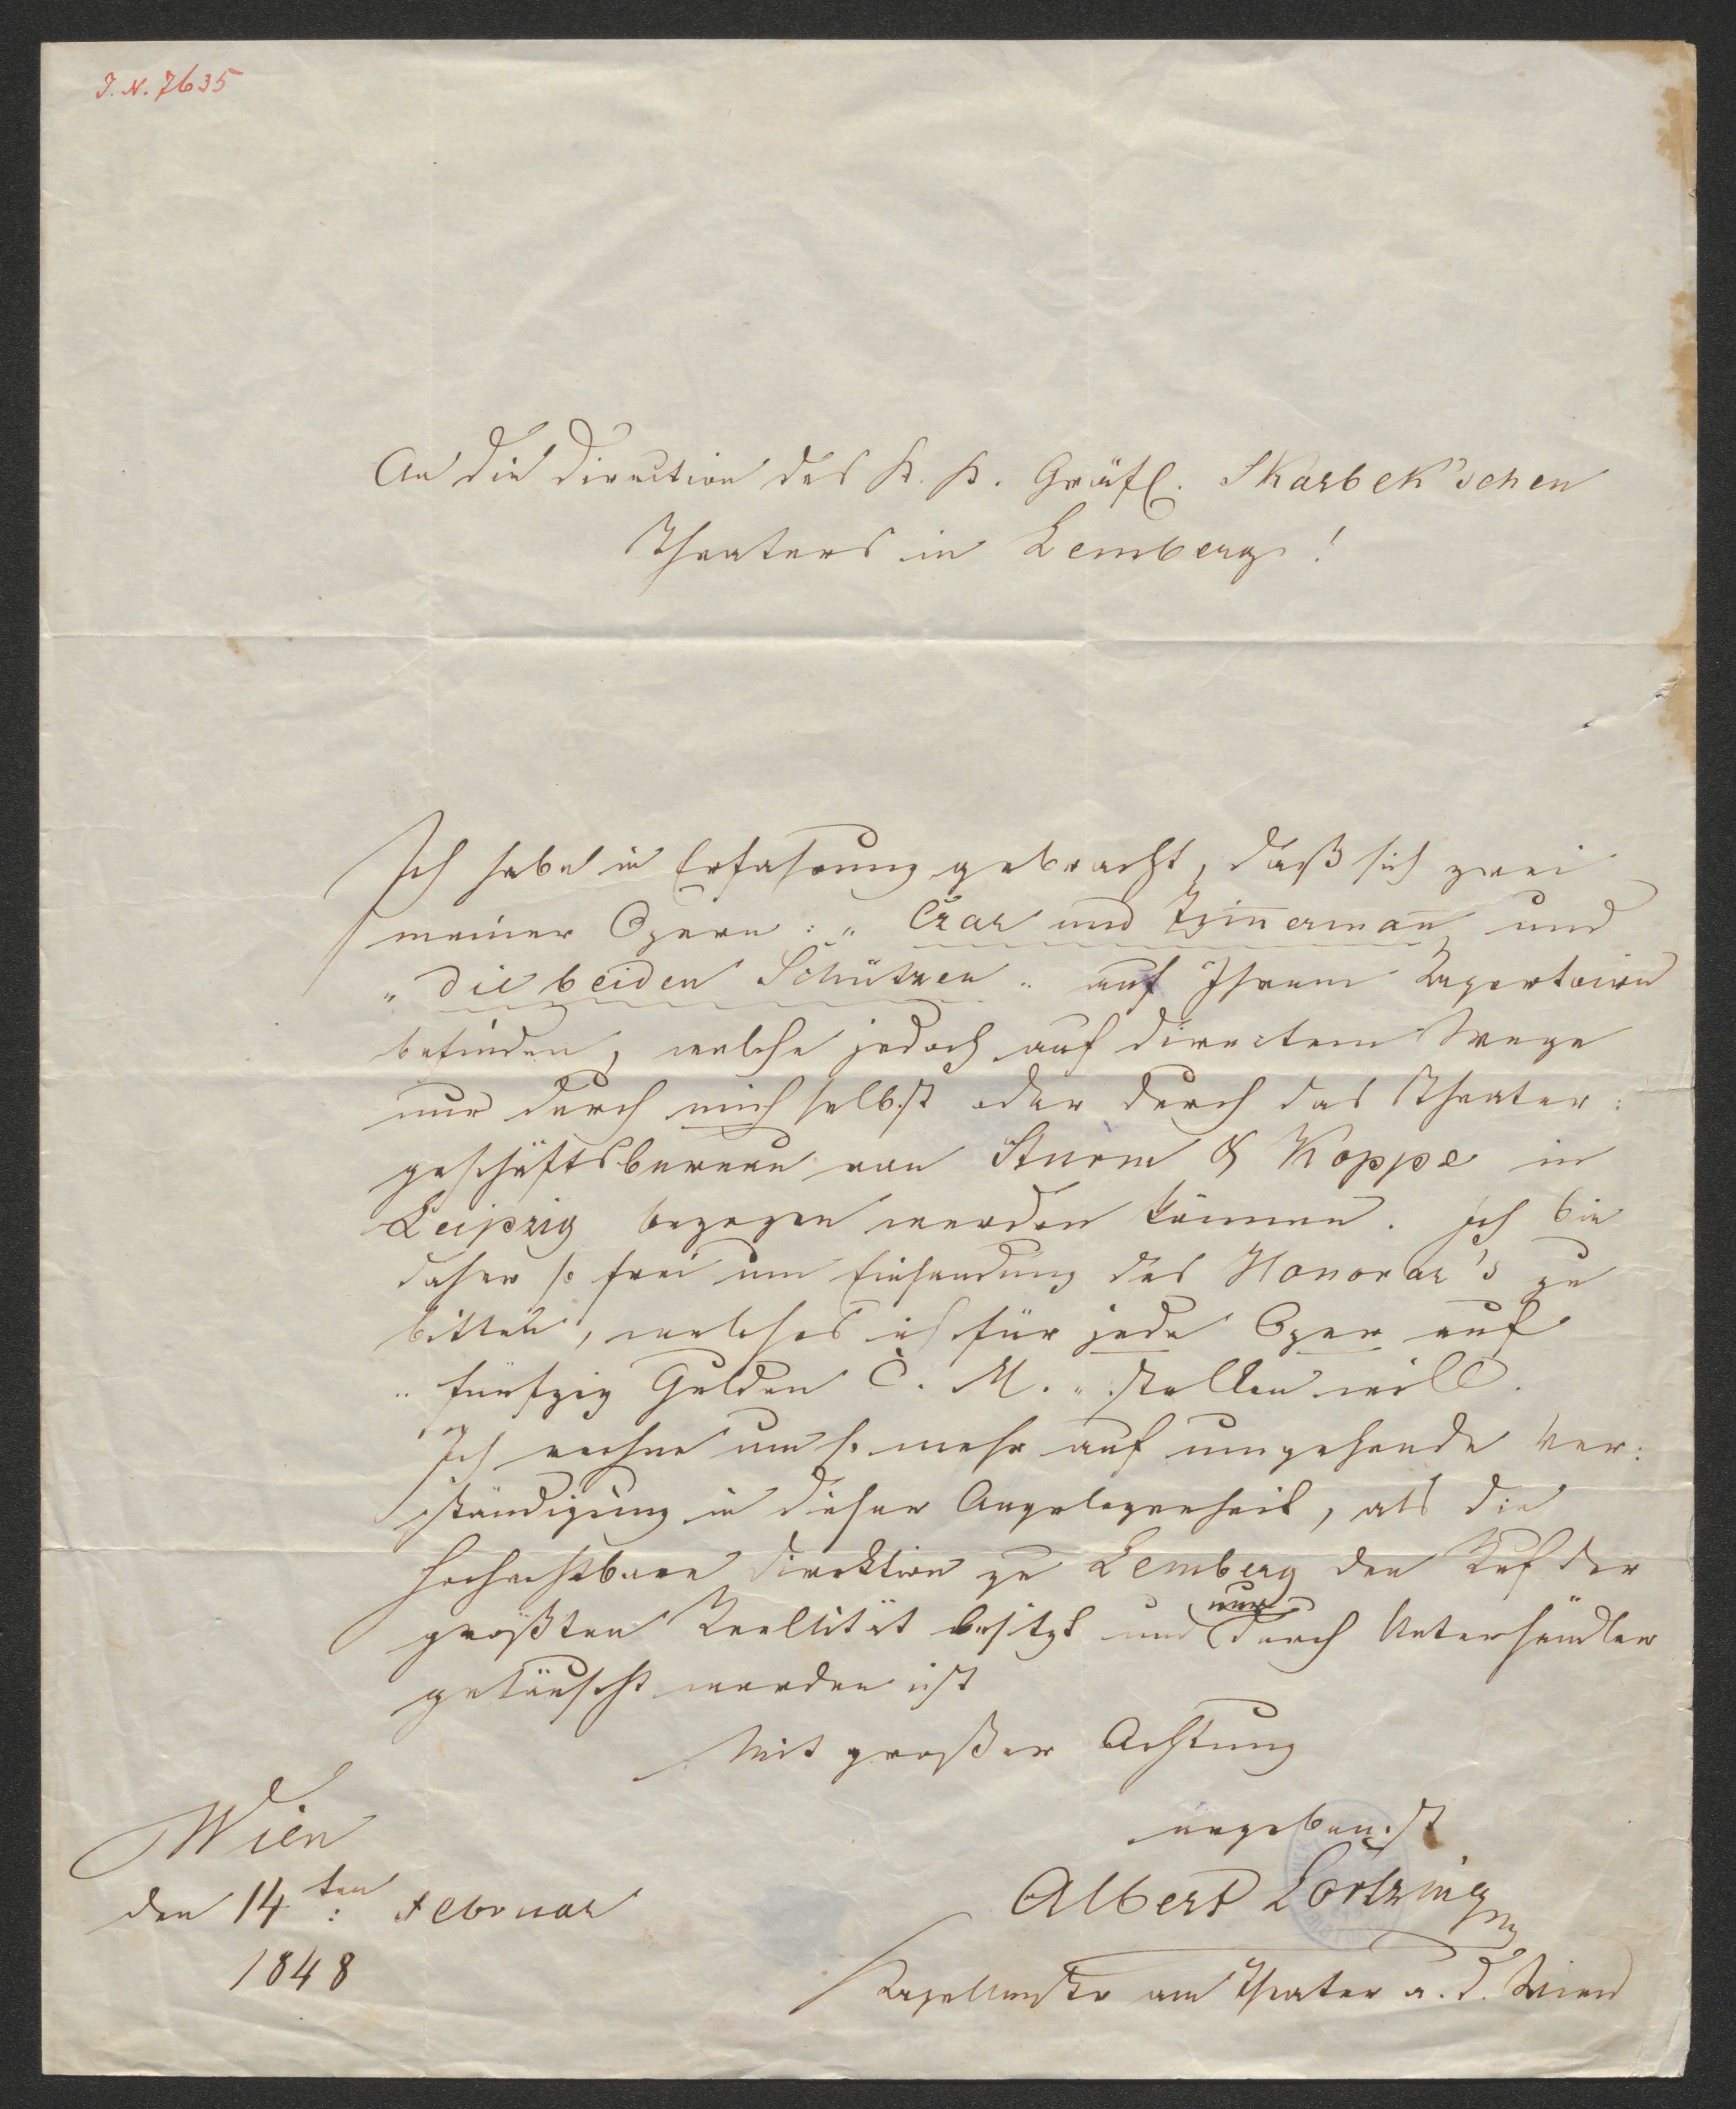 J. N. 7635
An die Direction des K. K. Gräfl. Skarbek'schen
Theaters in Lemberg!
Ich habe in Erfahrung gebracht, daß sich zwei
meiner Opern: „Czar und Zim̄erman̄" und
„die beiden Schützen" auf Ihrem Repertoire
befinden, welche jedoch auf directem Wege
nur durch mich selbst oder durch das Theater:
geschäftsbureau von Sturm & Koppe in
Leipzig bezogen werden können. Ich bin
daher so frei um Einsendung des Honorar's zu
bitten, welches ich für jede Oper auf
„fünfzig Gulden C. M." stellen will.
Ich rechne um so mehr auf umgehende Ver:
ständigung in dieser Angelegenheit, als die
hochachtbare Direktion zu Lemberg den Ruf der
größten Reellität besitzt und nur durch Unterhändler
getäuscht worden ist
Mit großer Achtung
ergebenst
Albert Lortzing
Kapellmstr am Theater a. d. Wien
Wien
den 14ten: Februar
1848